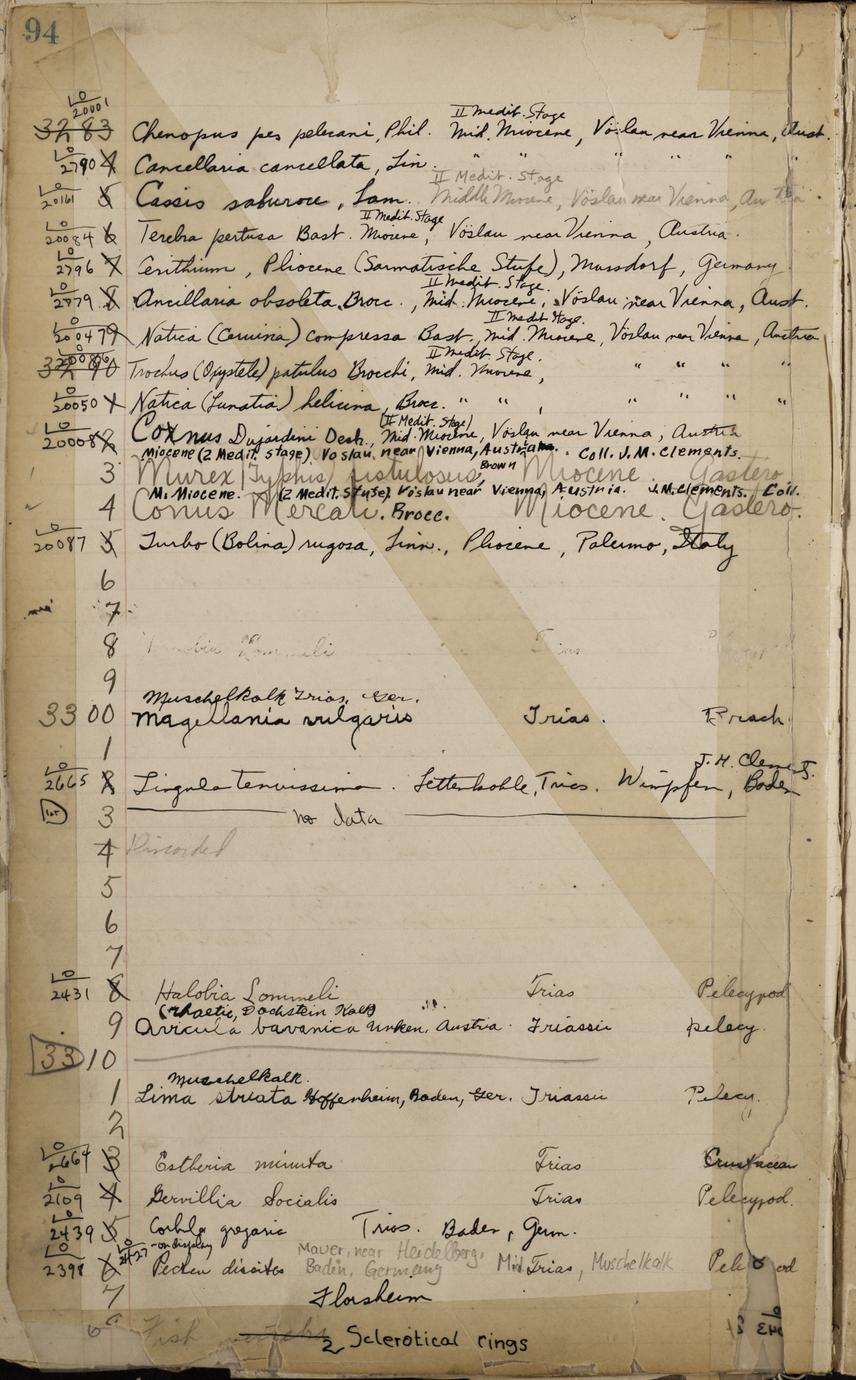 94
LO 20001
3283 Chenopus pes pelecani, Phil. II Medit. Stage Mid. Miocene, Vöslau near Vienna, Aust.
LO 2790 4 Cancellaria cancellata, Lin. " " " " "
II Medit. Stage
LO 20161 5 Cassis saburon, Lam. Middle Miocene, Vöslau near Vienna, Au
II Medit. Stage
LO 20084 6 Terebra pertusa Bast. Miocene, Vöslau near Vienna, Austria.
LO 2796 7 Cerithium, Pliocene (Sarmatische Stufe), Mussdorf, Germany
II Medit. Stage
LO 2779 8 Ancillaria obsoleta Brocc., Mid. Miocene, Vöslau near Vienna, Aust.
II Medit. Stage.
LO 20047 9 Natica (Cervina) compressa Bast. Mid. Miocene, Vöslau near Vienna, Austria
II Medit. Stage.
90 Trochus (Oxystele) patulus Brocchi, Mid. Miocene, " " " "
LO 20050 1 Natica (Lunatia) helicina, Brocc. " " , " " " "
(II Medit. Stage)
LO 20008 2 Conus Dujardini Desh., Mid. Miocene, Vöslau near Vienna, Austria
Miocene (2 Medit. stage) Voslau, near Vienna, Austria. Coll. J.M. Clements.
3 Murex (Typhis) fistulosus, Brown Miocene. Gastero.
M. Miocene. (2 Medit. Stufe) Vöslau near Vienna, Austria. J.M. Clements. Coll.
4 Conus Mercati. Brocc. Miocene. Gastero.
LO 20087 5 Turbo (Bolina) rugosa, Linn., Pliocene, Palermo, Italy
6
7
8 Lommeli Trias
9
Muschelkalk Trias, Ger.
3300 Magellania vulgaris Trias. Brach.
1
J. M. Clements.
LO 2665 2 Lingula tenuissima. Lettenkohle, Trias. Wimpfen, Baden
lot 3 no data
4 Discarded
5
6
7
LO 2431 8 Halobia Lommeli Trias Pelecypod
(Rhaetic, Dachstein Kalk)
9 Avicula bavanica Unken, Austria. Triassic pelecy.
3310
Muschelkalk.
1 Lima striata Hoffenheim, Baden, Ger. Triassic Pelecy.
2
LO 2664 3 Estheria minuta Trias Crustacean
LO 2109 4 Gervillia Socialis Trias Pelecypod.
LO 2439 5 Corbula gregaria Trias. Baden, Germ.
LO 2427 - on display
Mauer, near Heidelberg,
LO 2398 6 Pecten discites Baden, Germany Mid. Trias, Muschelkalk Pele od
7 Florsheim
Fish 2 Sclerotical rings